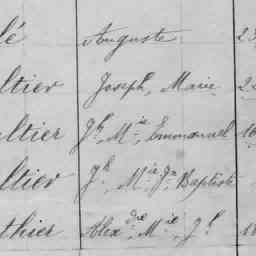 lé Auguste 2
ltier Joseph, Marie 2
ultier Jh, Mie, Emmanuel 16
ltier Jh, Mie Jn Baptiste
thier Alexdre, Mie, Jh 18